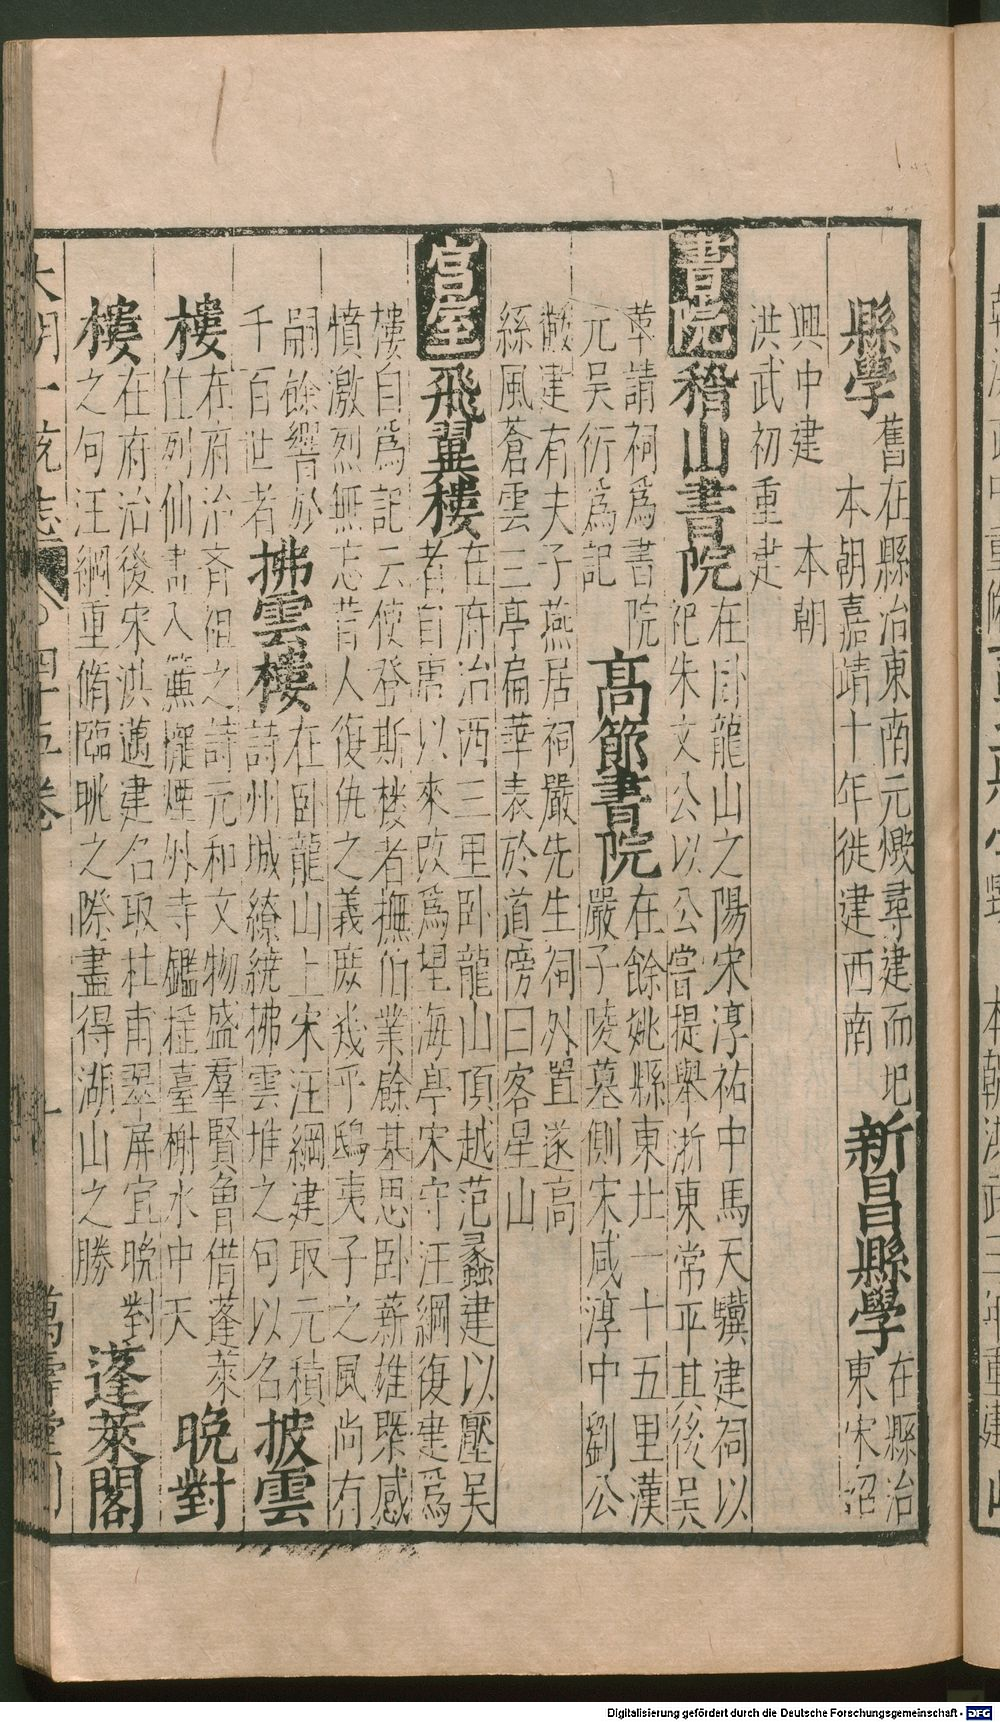 縣學
舊在縣治東南元燬尋建而圯
本朝嘉靖十年徙建西南
新昌縣學
在縣治
東宋紹
興中建 本朝
洪武初重建
書院
稽山書院
在卧龍山之陽宋淳祐中馬天驥建祠以
祀朱文公以公嘗提舉浙東常平其後吳
革請祠爲書院
元吳衍爲記
高節書院
在餘姚縣東北一十五里漢
嚴子陵墓側宋咸淳中劉公
敝建有夫子燕居祠嚴先生祠外置遂高
絲風蒼雲三亭扁華表於道傍曰客星山
宮室
飛翼樓
在府治西三里卧龍山頂越范蠡建以壓吳
者自唐以來改爲望海亭宋守汪綱復建爲
樓自爲記云使登斯樓者撫伯業餘基思卧薪雄槩感
憤激烈無忘昔人復仇之義庶幾乎鴟夷子之風尚有
嗣餘響於
千百世者
拂雲樓
在卧龍山上宋汪綱建取元稹
詩州城繚繞拂雲堆之句以名
披雲
樓
在府治齊徂之詩元和文物盛羣賢魯借蓬萊
住列仙畫入簾櫳煙外寺鑑挳臺榭水中天
晚對
樓
在府治後宋洪邁建名取杜甫翠屏宜晚對
之句汪綱重脩臨眺之際盡得湖山之勝
蓬萊閣
大明一統志
四十五卷
十
萬壽堂刊
Digitalisierung gefördert durch die Deutsche Forschungsgemeinschaft - DFG